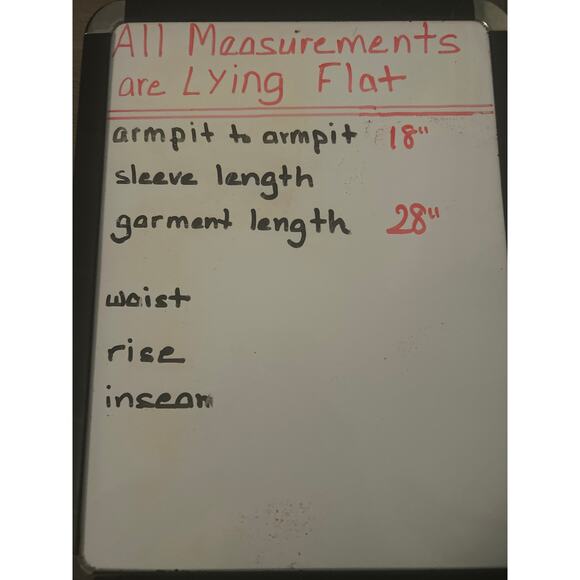 All Measurements
are Lying Flat
armpit to armpit 18"
sleeve length
garment length 28"
waist
rise
inseam